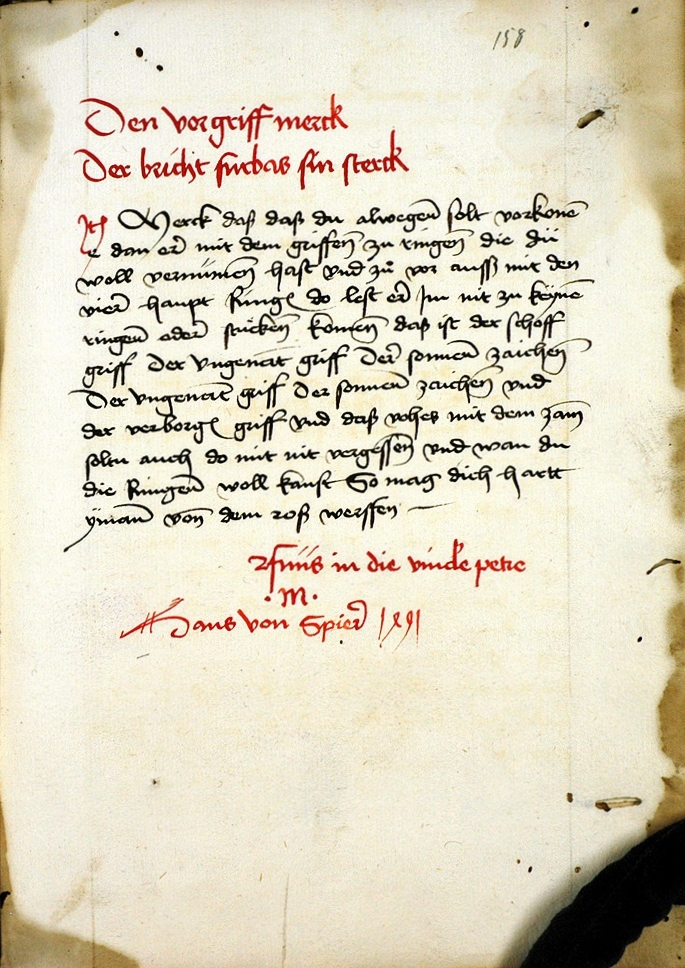 158
Den vorgriff merck
Der bricht furbas sin sterck
Itē Merck daß daß du alwegen̄ solt vorkōnē
e dan er̄ mit dem griffen̄ zu ringen̄ die dü
woll vernümen̄ hast vnd zů vor auss mit den
vier̄ haupt Ring do lest er̄ Im nit zu keynē
ringen̄ oder̄ stucken̄ komen̄ daß ist der schoff
griff Der vngenāt griff Der̄ sonnen̄ zaichen̄
Der vngenāt griff Der sonnen̄ zaichen̄ vnd
der verborg griff vnd daß vohes mit dem zam̄
soltu auch do mit nit vergessen̄ vnd wan du
die Ringen̄ woll kanst So mag dich hartt
ÿman̄ von̄ dem roß werffen
in die vincle petre
.M.
Hans von Spier̄ 1491